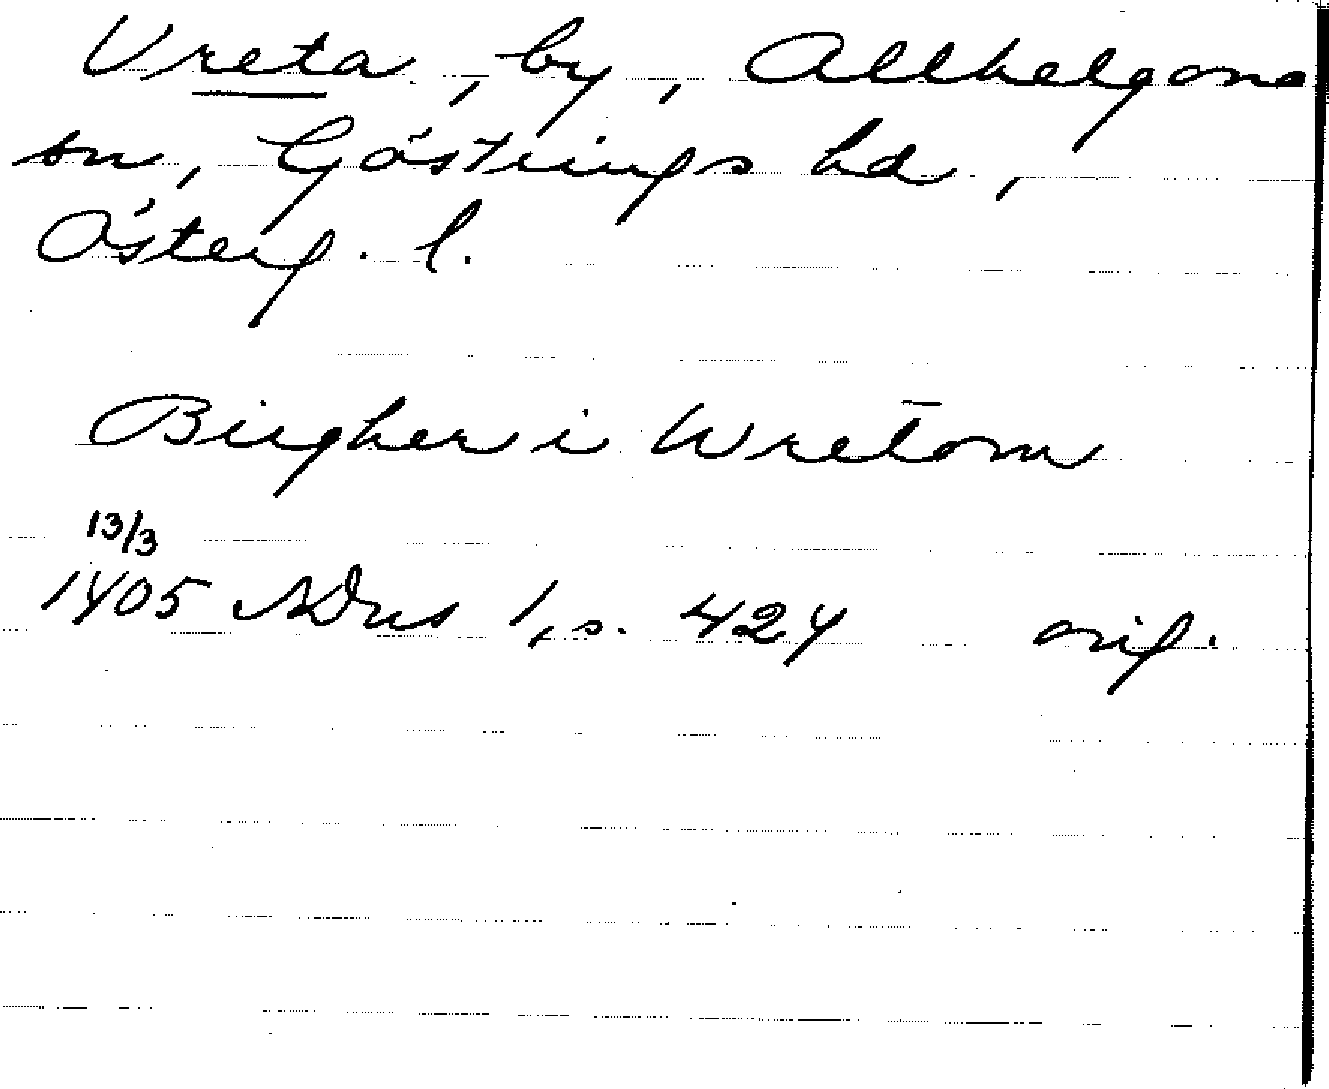 Vreta, by, Allhelgona
sn, Göstrings hd,
Österg. l.
Birgher i Wretōm
13/3
1405 SDns 1, s. 424 orig.